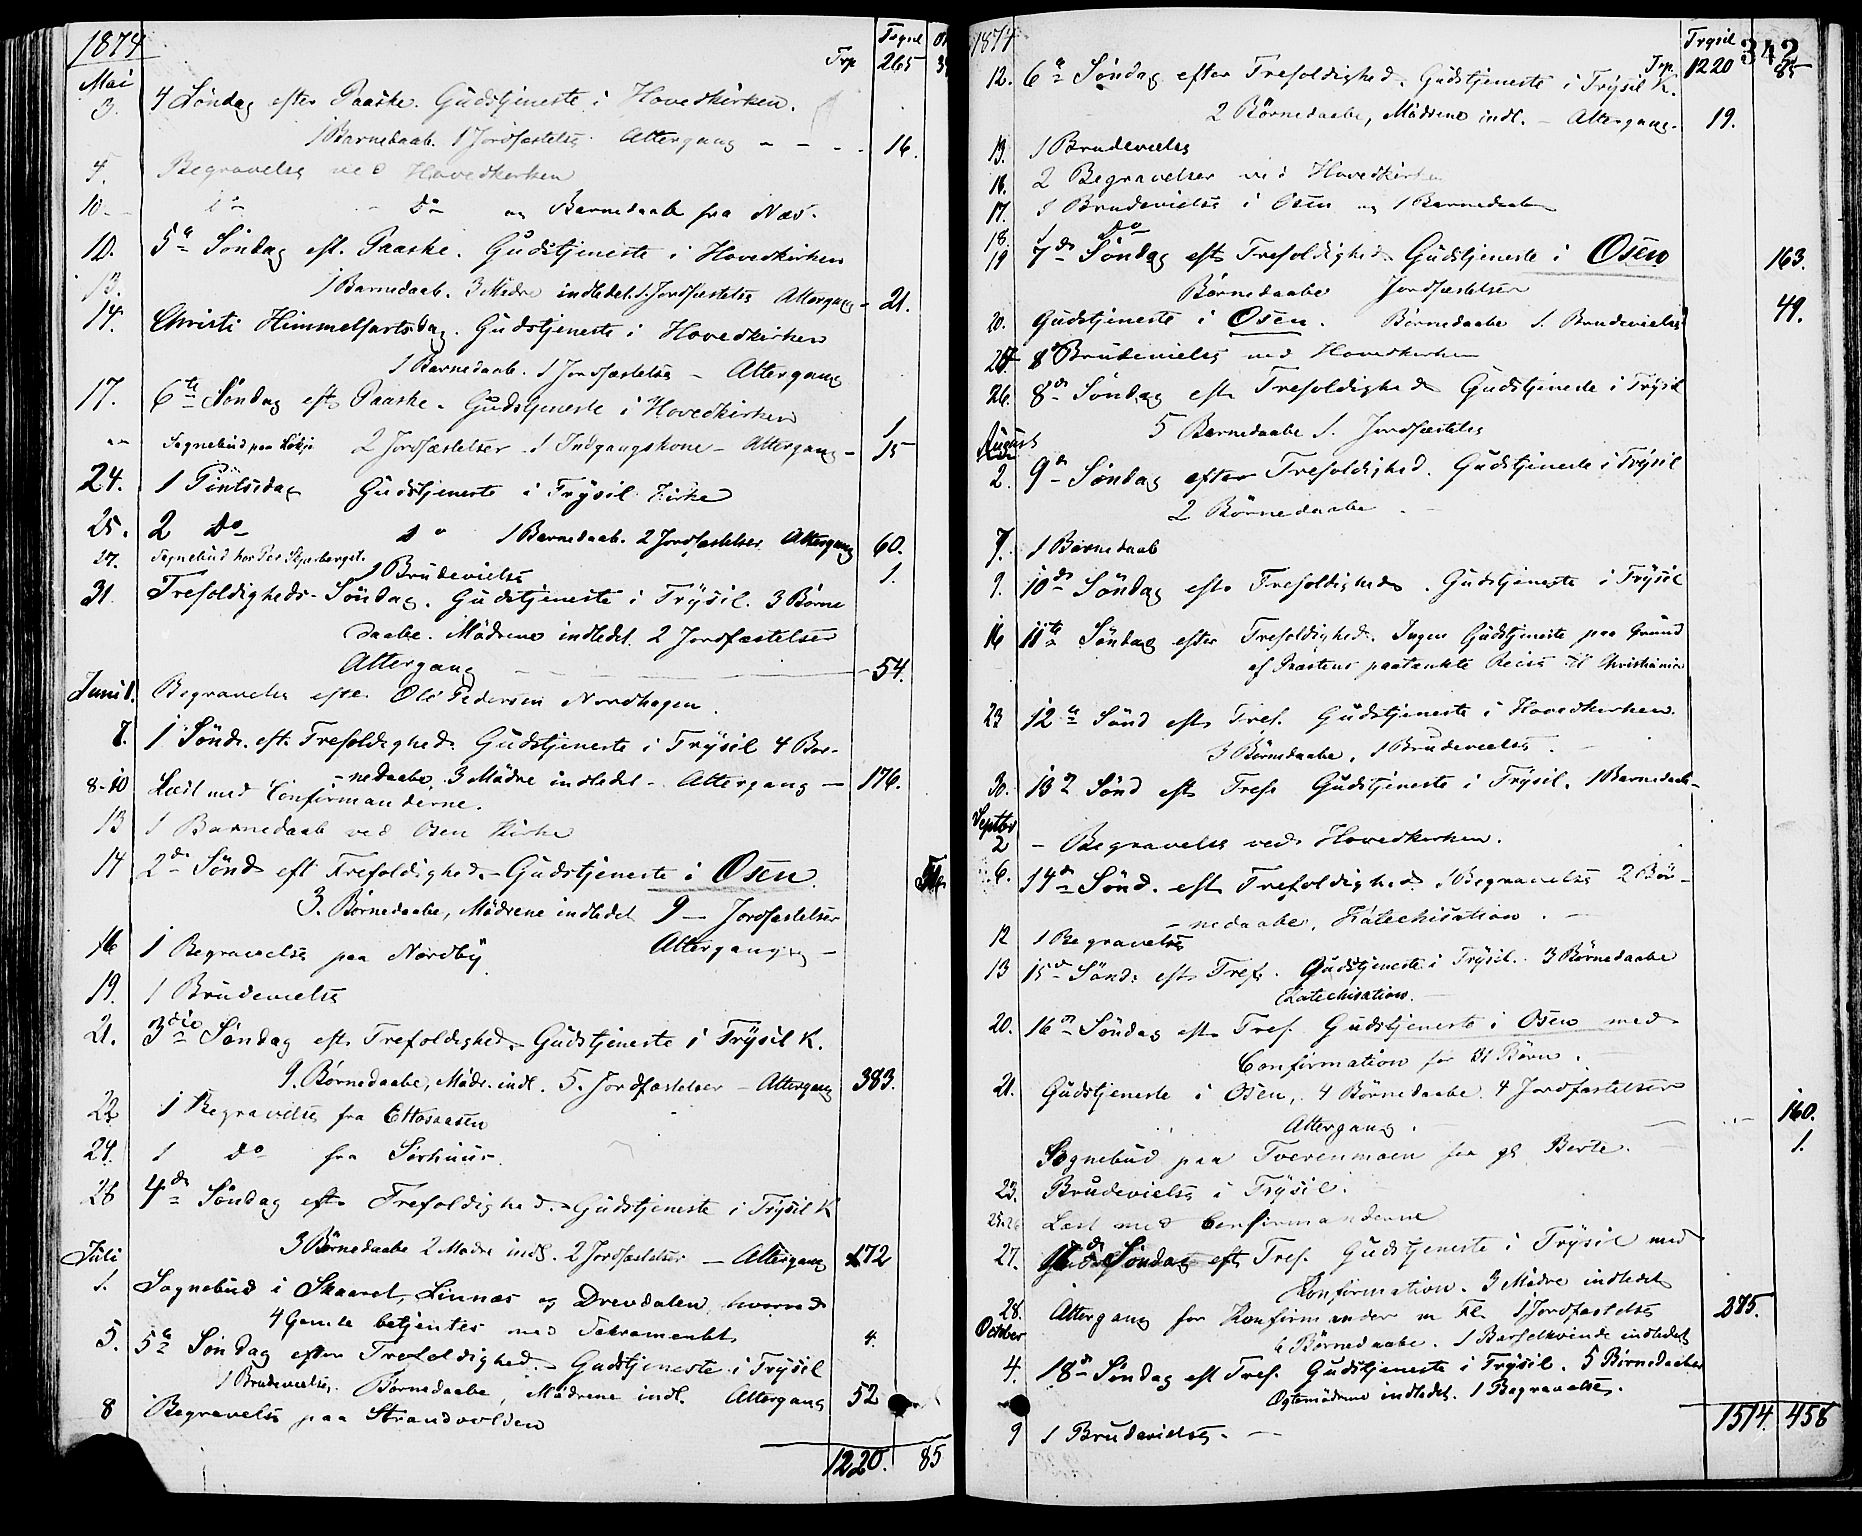 1874
Trysil
Trp 265
Mai
3. 4 Søndag efter Paaske. Gudstjeneste i Hovedkirken.
1 Barnedaab. 1 Jordfæstelse. Altergang - - - 16.
4. Begravelse ved Hovedkirken
10. Do - Do og Barnedaab fra Næs.
10. 5te Søndag eft. Paaske. Gudstjeneste i Hovedkirken
13. 1 Barnedaab. 3 Mødre indledet. 1. Jordfæstelse Altergang - 21.
14. Christi Himmelfartsdag. Gudstjeneste i Hovedkirken
1 Barnedaab. 1 Jordfæstelse - Altergang
17. 6te Søndag eft. Paaske. Gudstjeneste i Hovedkirken 1
Sognebud paa 2 Jordfæstelser. 1 Indgangskone - Altergang - 15
24. 1 Pintsedag Gudstjeneste i Trysil Kirke
25. 2 Do 1 Barnedaab. 2 Jordfæstelser Altergang 60.
27. Sognebud hos Per 1 Brudevielse 1.
31 Trefoldigheds-Søndag. Gudstjeneste i Trysil. 3 Børne
daabe. Mødrene indledet. 2 Jordfæstelser
Altergang - 54.
Juni 1. Begravelse efter Ole Pedersen Nordhagen.
7. 1 Sønd. eft. Trefoldighed. Gudstjeneste i Trysil 4 Bør-
-nedaabe, 3 Mødre indledet - Altergang - 176.
8-10 Læst med Confirmanderne.
13 1 Barnedaab ved Osen Kirke
14 2d Sønd eft Trefoldighed - Gudstjeneste i Osen.
3. Børnedaabe, Mødrene indledet 9 - Jordfæstelser
Altergang -
16 1 Begravelse paa Nordby
19. 1 Brudevielse
21. 3die Søndag eft. Trefoldighed - Gudstjeneste i Trysil K.
9. Børnedaabe, Mødr. indl. 5. Jordfæstelser - Altergang 383.
22 1 Begravelse fra
24. 1 Do fra Sørhuus.
28 4de Søndag eft. Trefoldighed - Gudstjeneste i Trysil K
3 Børnedaabe 2 Mødre indl. 2 Jordfæstelser - Altergang 172
Juli
1. Sognebud i Skaaret, Linnes og Drevdalen, hvorved
4 Gamle betjentes med Sakramentet 4.
5. 5te Søndag efter Trefoldighed. - Gudstjeneste i Trysil
1 Brudevielse. Børnedaabe, Mødrene indl. Altergang 52
8 Begravelse paa Strandvolden
1220. 85
1874 342
Trysil
Trp. 1220 85
12. 6te Søndag efter Trefoldighed. Gudstjeneste i Trysil K.
2 Børnedaabe, Mødrene indl. - Altergang - 19.
13. 1 Brudevielse
16. 2 Begravelser ved Hovedkirken
17. 1 Brudevielse i Osen og 1 Barnedaab
18. 1 do
19 7de Søndag eft Trefoldighed Gudstjeneste i Osen 163.
Børnedaabe Jordfæstelser
20. Gudstjeneste i Osen. Børnedaabe 1. Brudevielse 49.
Brudevielse ved Hovedkirken
26. 8de Søndag eft. Trefoldighed Gudstjeneste i Trysil
5 Børnedaabe 1. Jordfæstelse
August
2. 9de Søndag efter Trefoldighed. Gudstjeneste i Trysil
2 Børnedaabe
7. 1 Barnedaab
9. 10de Søndag eft. Trefoldighed. Gudstjeneste i Trysil
16 11te Søndag efter Trefoldighed. Ingen Gudstjeneste paa Grund
af Præstens paatænkte Reise til Christiania
23 12te Sønd eft. Tref. Gudstjeneste i Hovedkirken.
3 Børnedaabe, 1 Brudevielse.
30. 13 Sønd eft Tref. Gudstjeneste i Trysil. 1 Barnedaab -
Septbr
2 - Begravelse ved Hovedkirken.
6. 14de Sønd. eft Trefoldighed 1 Begravelse 2 Bør-
-nedaabe, Katechisation.
12 1 Begravelse
13 15de Sønd. eft Tref. Gudstjeneste i Trysil. 3 Børnedaabe
Katechisation.
20. 16de Søndag eft. Tref. Gudstjeneste i Osen med
Confirmation for 21 Børn.
21. Gudstjeneste i Osen, 4 Børnedaabe. 4 Jordfæstelser
Altergang. 160.
Sognebud paa Tverenmoen fra gl Berte. 1.
23. Brudevielse i Trysil.
25.26 Læst med Confirmanderne
27. Søndag eft Tref. Gudstjeneste i Trysil med
Konfirmation. 3 Mødre indledet
28. Altergang for Konfirmander m Fl. 1 Jordfæstelse 275.
October
6 Børnedaabe. 1 Barselkvinde indledet
4. 18de Søndag eft Tref. Gudstjeneste i Trysil. 5 Børnedaabe
Ogtemødrene indledet. 1 Begravelse.
9 1 Brudevielse. -
1514. 458